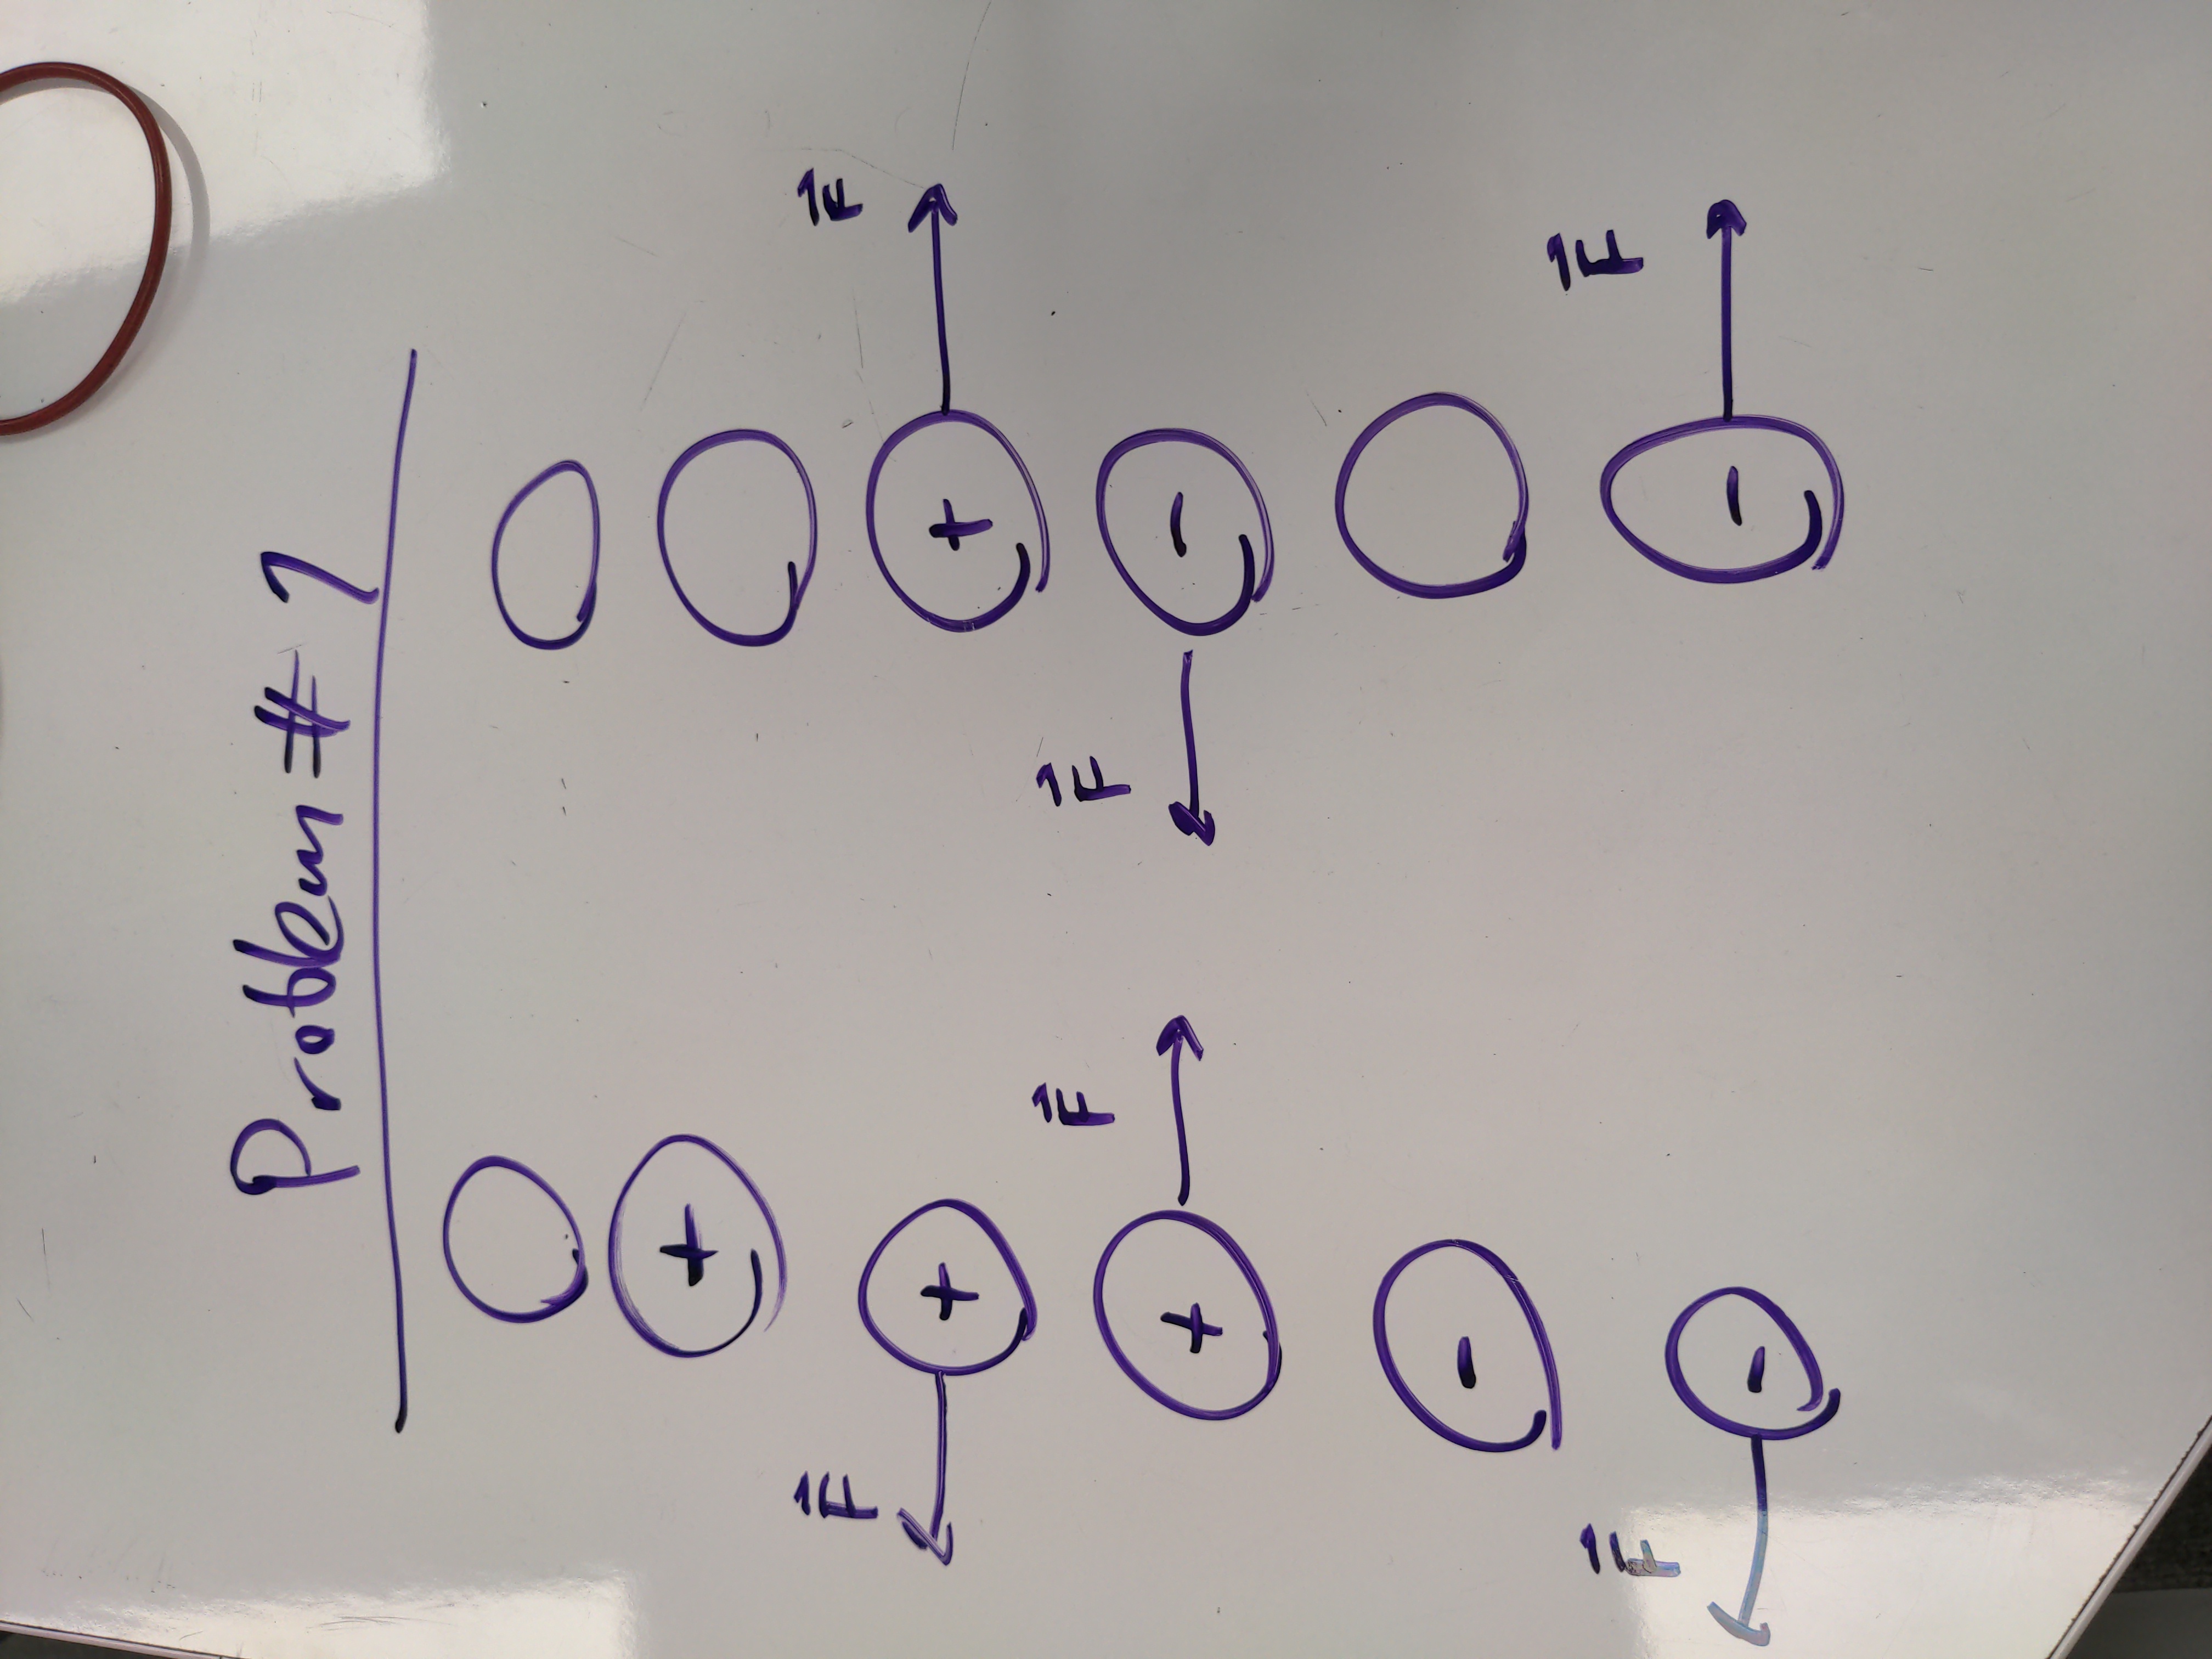 Problem # 1
+
F⃗ F⃗
+ +
F⃗ F⃗
+ -
-
F⃗ F⃗
- -